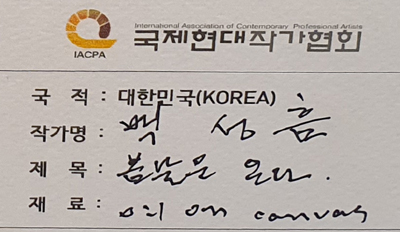 International Association of Contemporary Professional Artists
국제현대작가협회
IACPA
국 적 : 대한민국(KOREA)
작가명 : 백 성 흠
제 목 : 봄날은 온다.
재 료 : oil on canvas